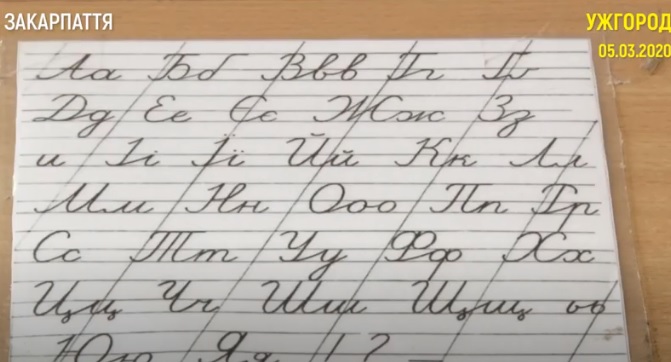 ЗАКАРПАТТЯ
УЖГОРОД
05.03.2020
Аа Бб Ввв Гг Ґґ
Дд Ее Єє Жж Зз
и Іі Її Йй Кк Лл
Мм Нн Ооо Пп Рр
Сс Тт Уу Фф Хх
Цц Чч Шш Щщ ь
Юю Яя ! ? —